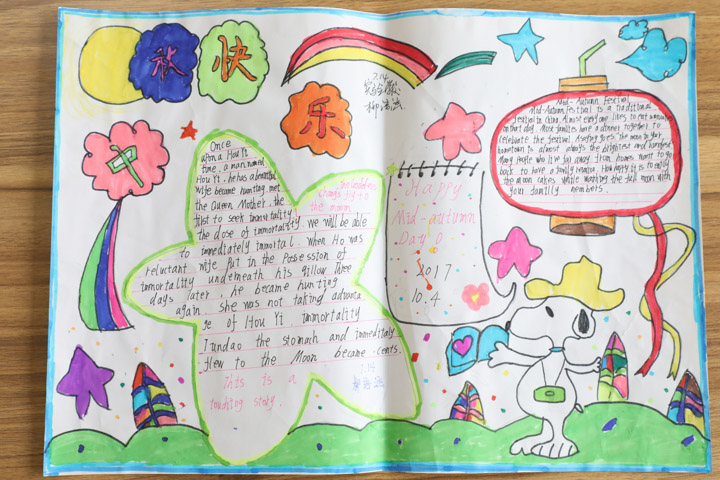 中
秋
快
乐
7.14
Once
upon a Hou Yi
time, a man named
Hou Yi, he has a beautiful
wife become hunting met
the Queen Mother, the
first to seek immortality
the dose of immortality. we will be able
to immediately immortal. When Ho was
reluctant wife put in the Possession of
immortality underneath his pillow Three
days later, he became hunting
again she was not taking advanta
ge of Hou Yi, immortality
Jundao the stomach and immeditaly
flew to the Moon became cents.
This is a
touching story.
7.14
the moon
Happy
Mid-autumn
Day
2017
10.4
Mid-Autumn Festival
Mid-Autumn Festival is a traditional
festival in China. Almost everyone likes to eat mooncakes
on that day. Most families have a dinner together to
celebrate the festival. A saying goes "The moon in your
hometown is almost always the brightest and
Many people who live far away from homes want to go
back to have a family reunion. How happy it is to enjoy
the moon cakes while watching the full moon with
your family members.